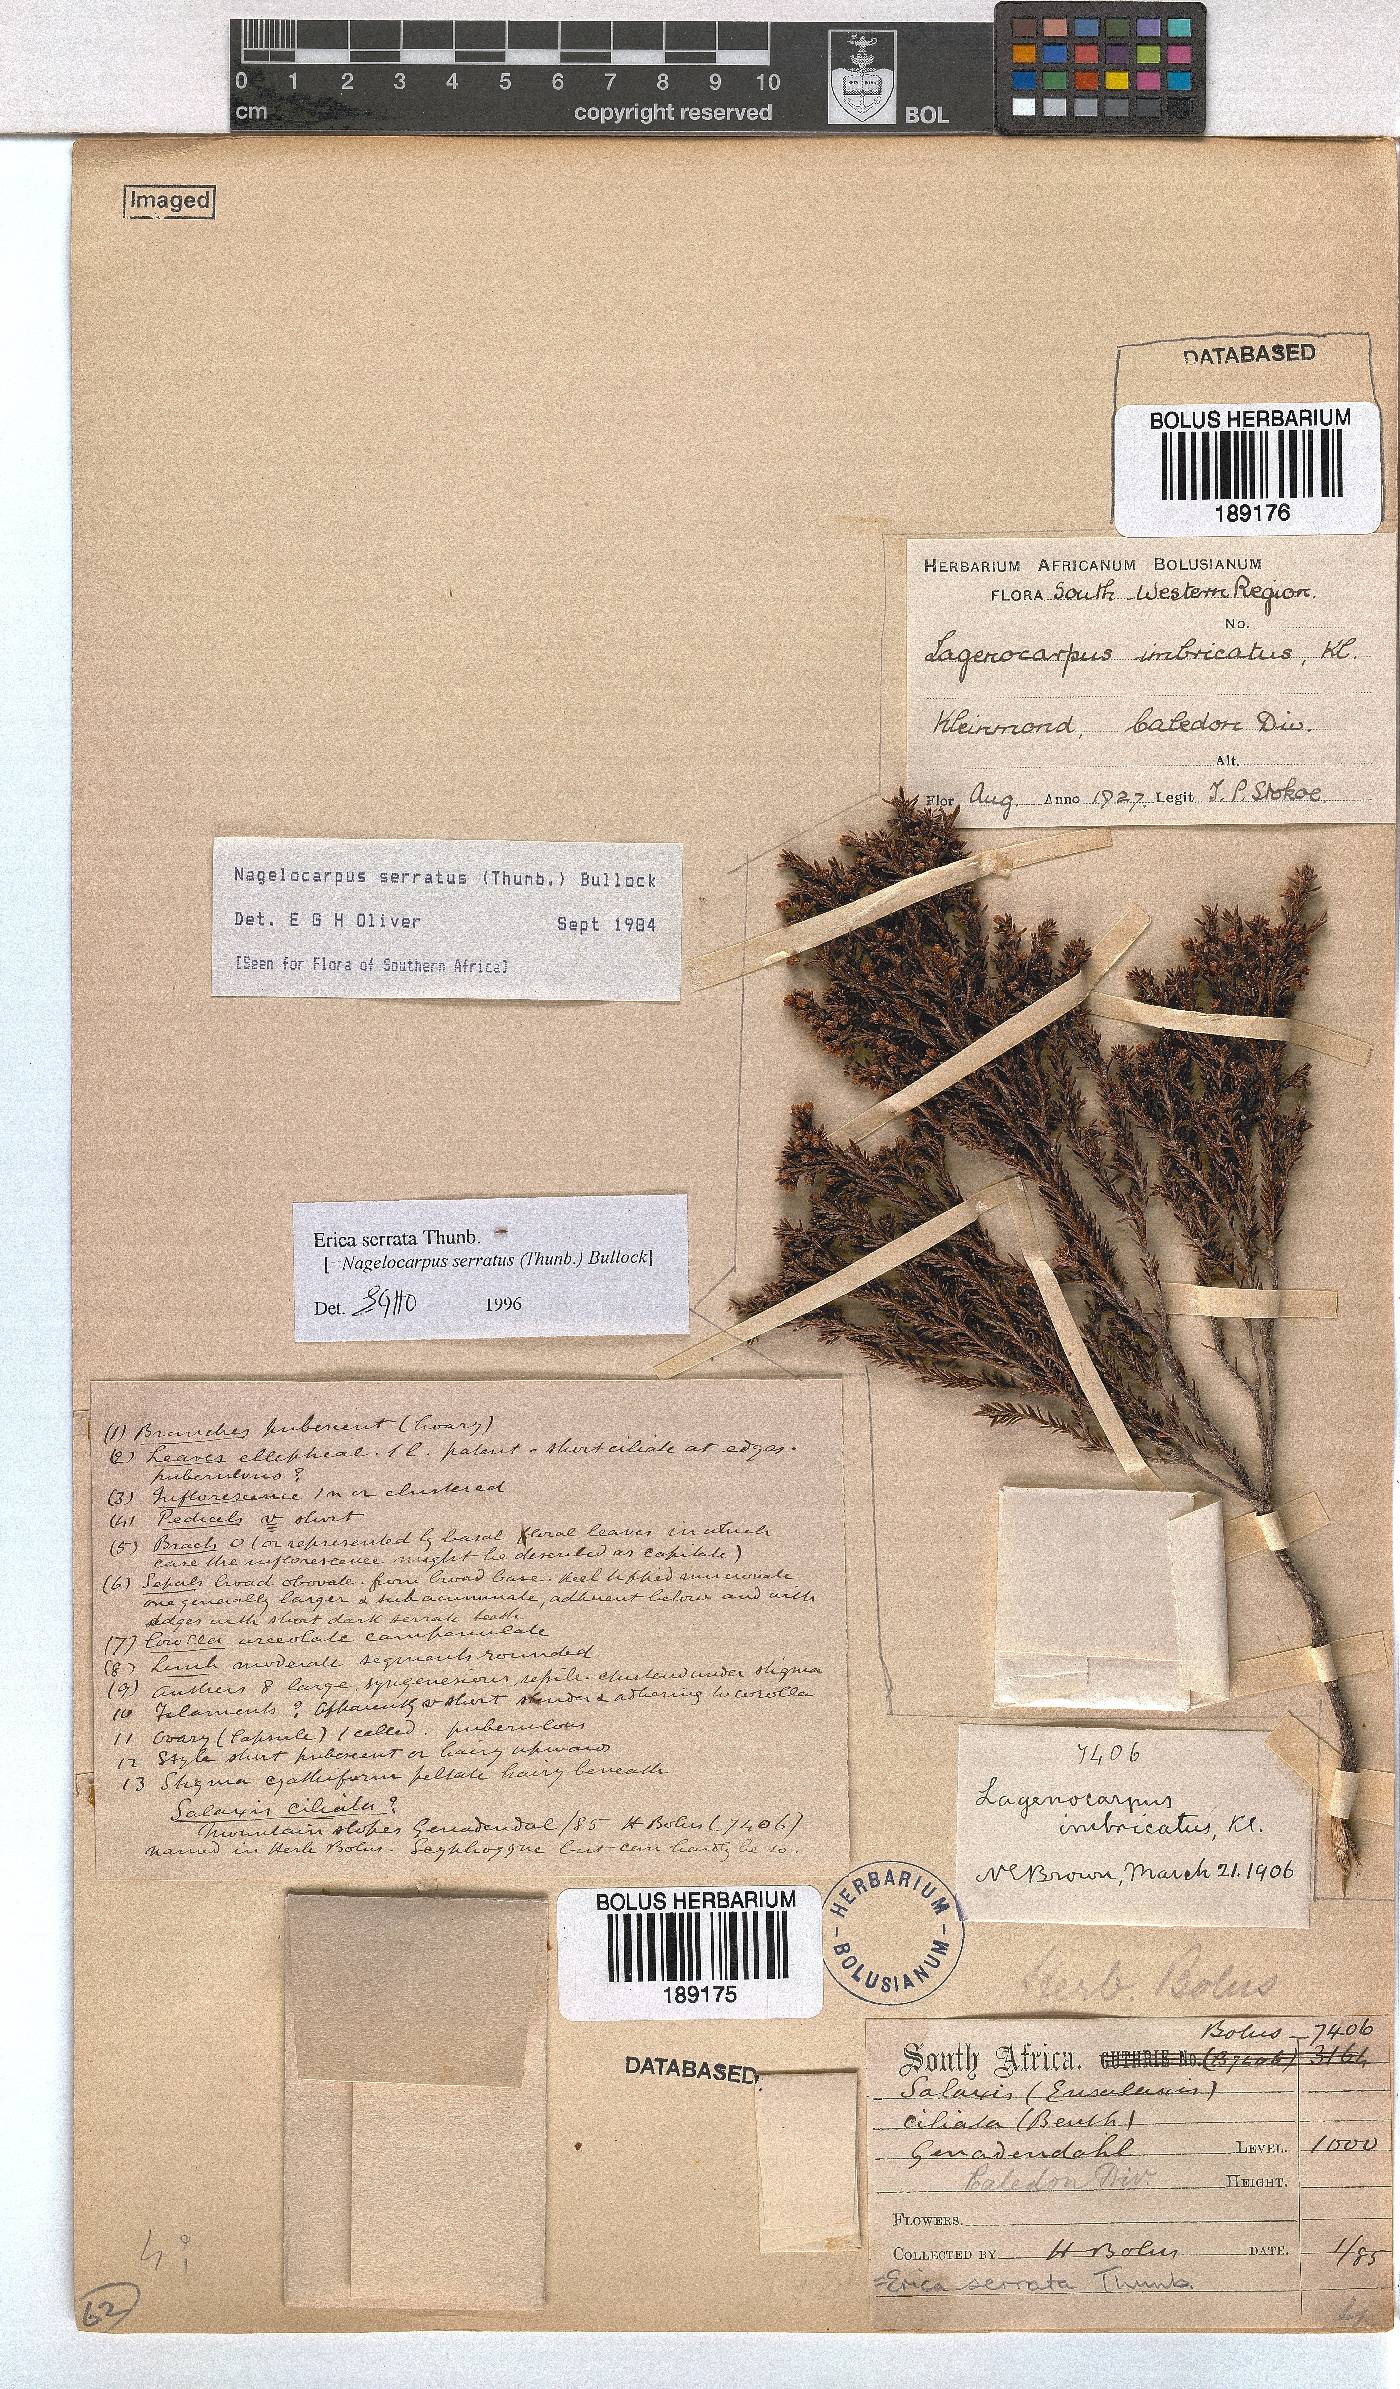 0 1 2 3 4 5 6 7 8 9 10
cm copyright reserved BOL
Imaged
DATABASED
BOLUS HERBARIUM
189176
HERBARIUM AFRICANUM BOLUSIANUM
FLORA South Western Region.
No.
Lagenocarpus imbricatus, Kl.
Kleinmond, Caledon Div.
Alt.
Flor Aug. Anno 1927. Legit T. P. Stokoe.
Nagelocarpus serratus (Thunb.) Bullock
Det. E G H Oliver Sept 1984
[Seen for Flora of Southern Africa]
Erica serrata Thunb.
[ Nagelocarpus serratus (Thunb.) Bullock]
Det. EGHO 1996
(1) Branches pubescent (hoary)
(2) Leaves elliptical. 1 l. patent - short ciliate at edges.
puberulous?
(3) Inflorescence 1 n or clustered
(4) Pedicels v short
(5) Bracts 0 (or represented by basal floral leaves in which
case the inflorescence might be described as capitate)
(6) Sepals broad obovate from broad base. keel tipped mucronate
one generally larger & subacuminate, adherent below and with
edges with short dark serrate teeth
(7) Corolla urceolate campanulate
(8) Limb moderate segments rounded
(9) Anthers 8 large, syngenesious, sessile clustered under stigma
10 Filaments? Apparently v short slender & adhering to corolla
11 Ovary (Capsule) 1 celled. puberulous
12 Style short pubescent or hairy upwards
13 Stigma cyathiform peltate hairy beneath
Salaxis ciliata?
Mountain slopes Genadendal 1/85 H Bolus (7406)
named in Herb Bolus. Scyphogyne but can hardly be so.
7406
Lagenocarpus
imbricatus, Kl.
N E Brown, March 21. 1906
BOLUS HERBARIUM
189175
HERBARIUM
BOLUSIANUM
DATABASED
Herb. Bolus
Bolus - 7406
South Africa. GUTHRIE No. 3164
Salaxis (Eusalaxis)
ciliata (Benth)
Genadendahl LEVEL. 1000
Caledon Div HEIGHT.
FLOWERS.
COLLECTED BY H Bolus DATE. 1/85
=Erica serrata Thunb.
62